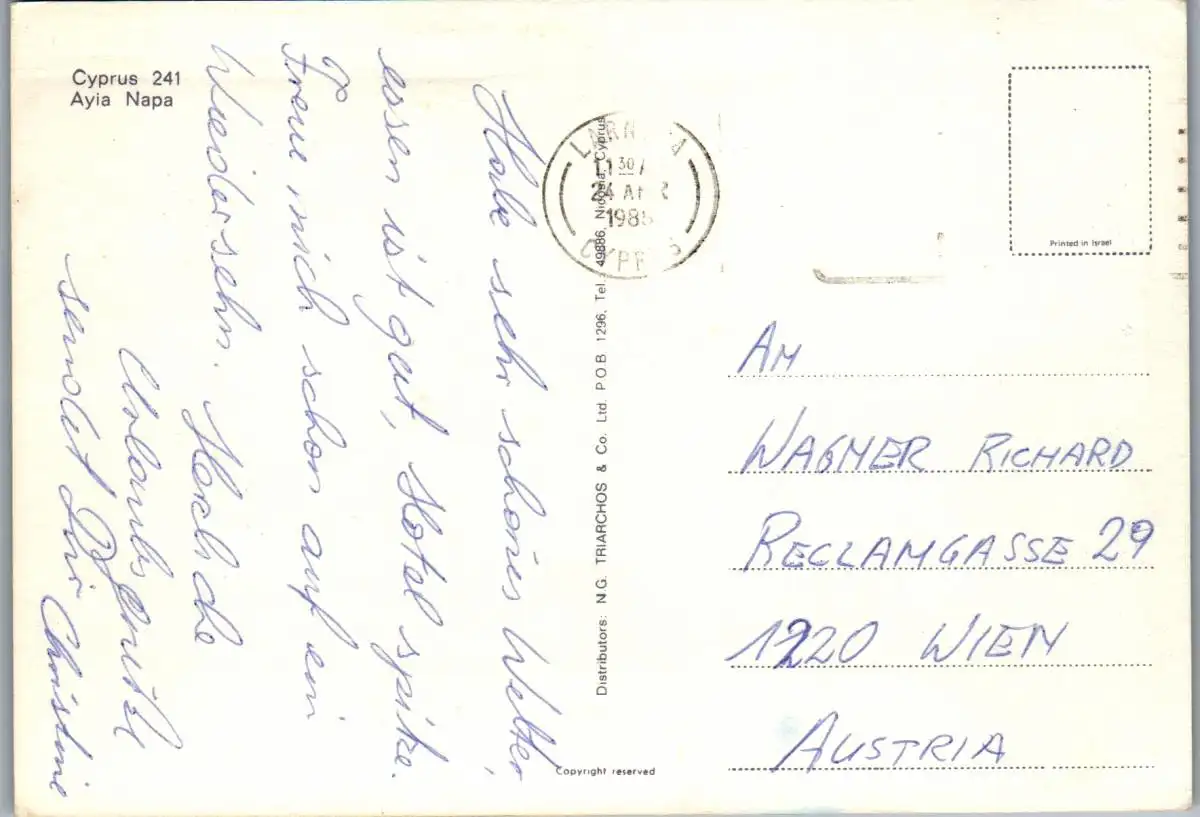 Cyprus 241
Ayia Napa
Habe sehr schönes Wetter,
essen ist gut, Hotel spitze.
Freue mich schon auf ein
Wiedersehn. Herzliche
Urlaubsgrüße
sendet Dir Christine
Distributors: N.G. TRIARCHOS & Co. Ltd. P.O.B. 1296, Tel. 49886, Nicosia, Cyprus
Copyright reserved
LARNACA
11 30
24
198
CYPRUS
Printed in Israel
AN
WAGNER RICHARD
RECLAMGASSE 29
1220 WIEN
AUSTRIA